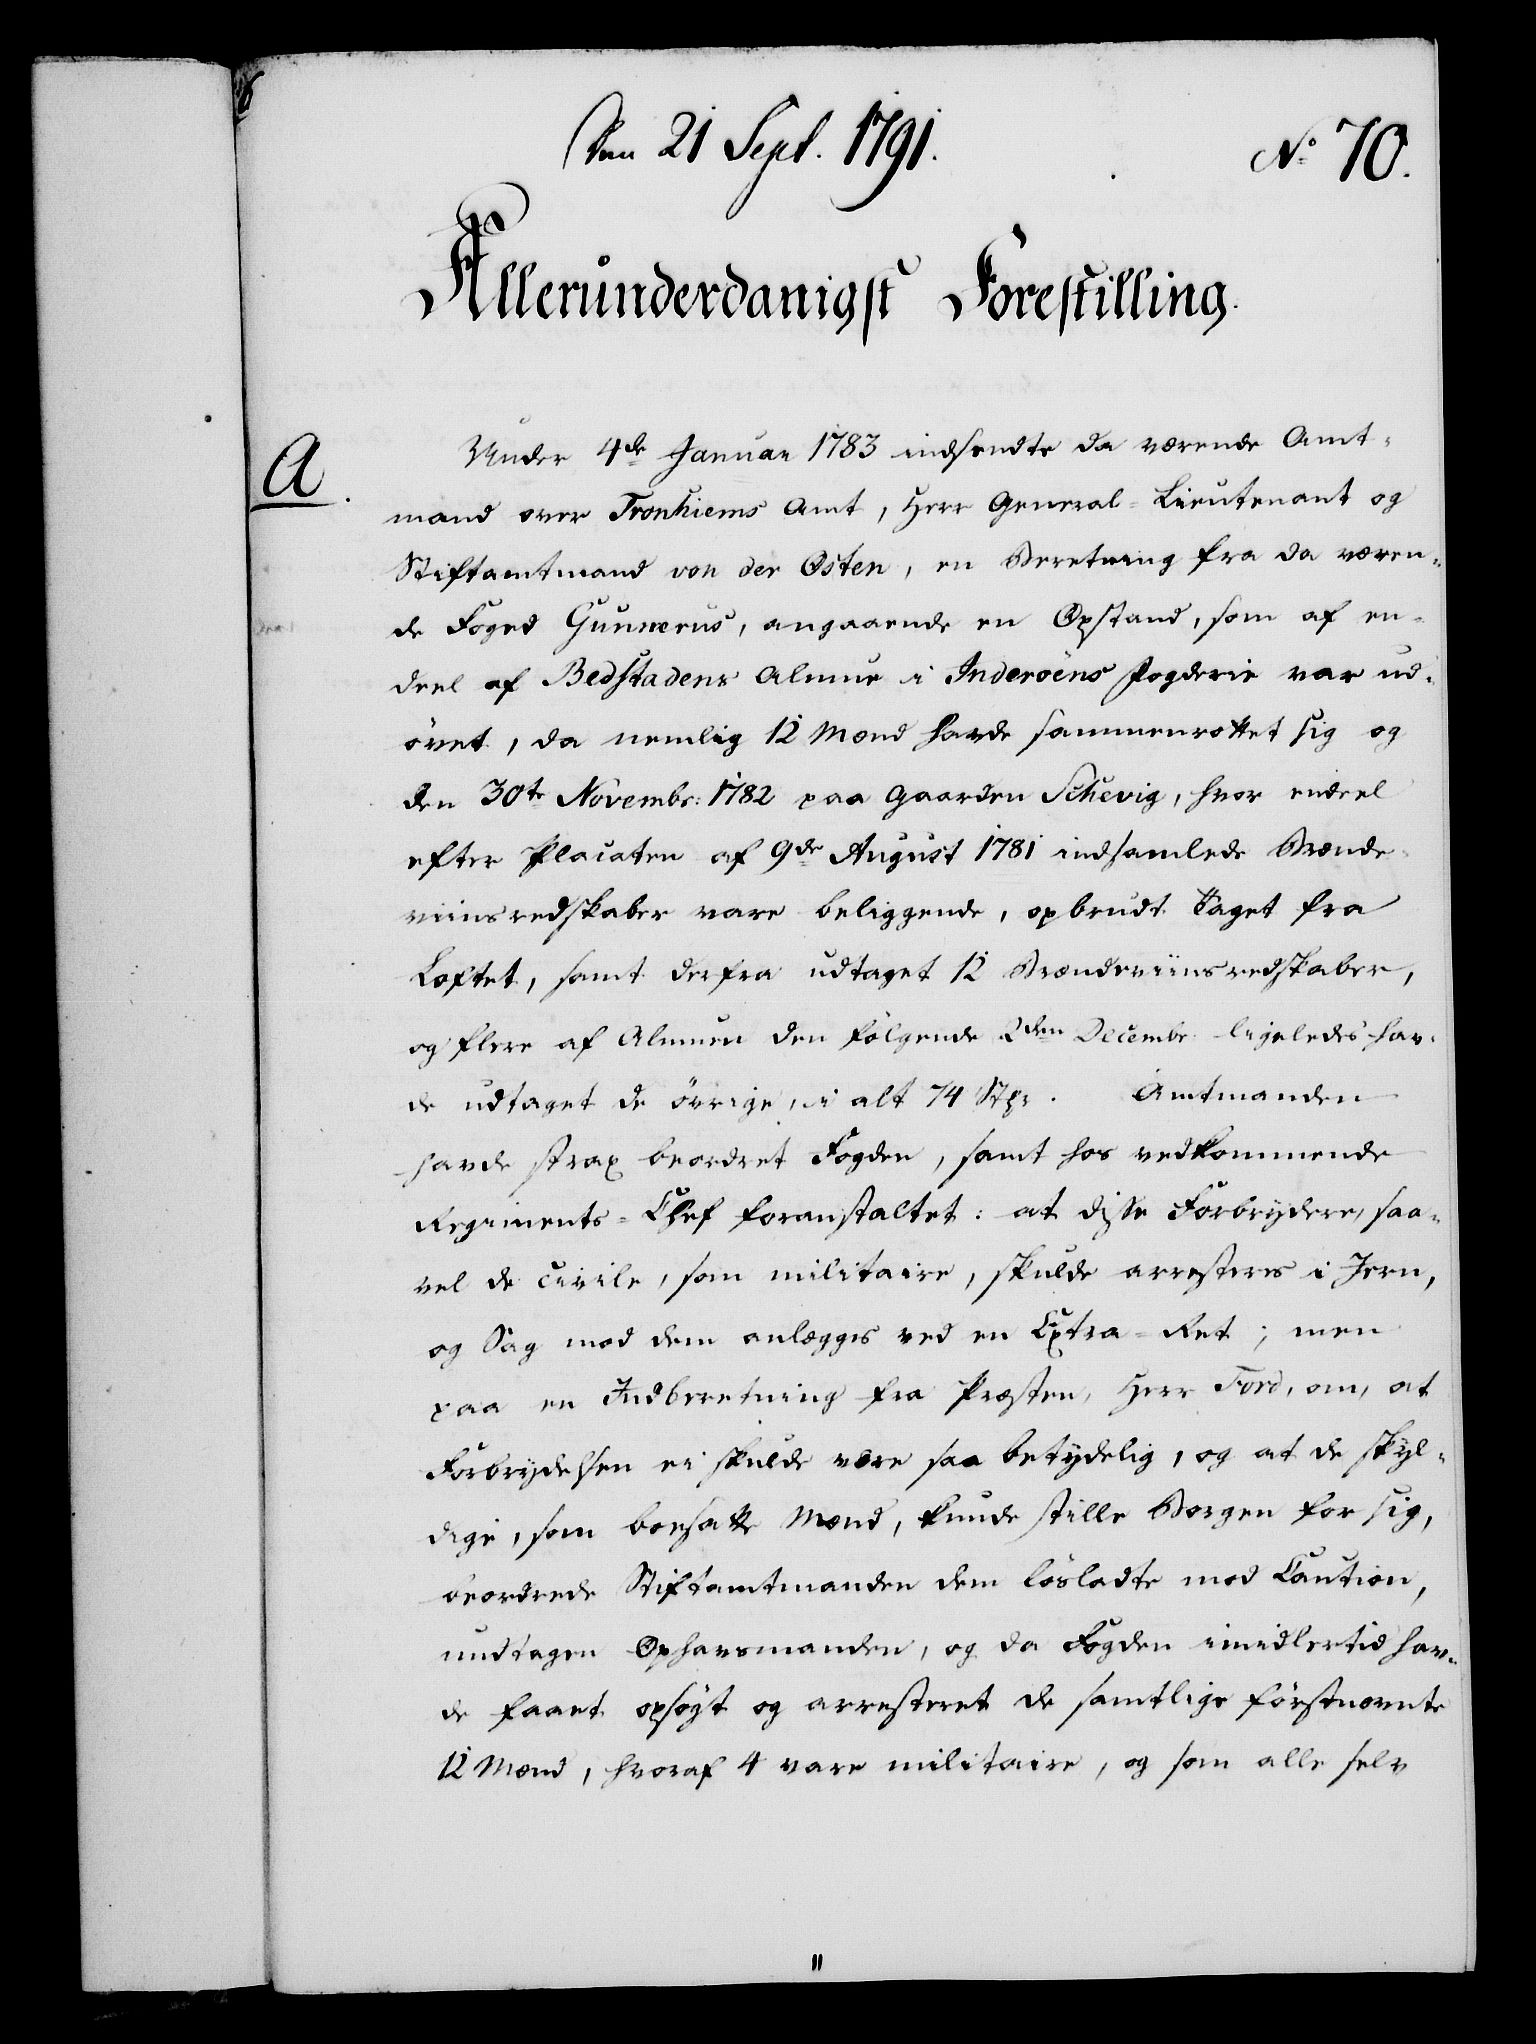 Den 21 Sept. 1791.
No 70.
Allerunderdanigst Forestilling.
A.
Under 4de Januar 1783 indsendte da værende Amt-
mand over Tronhiems Amt, Herr General-Lieutenant og
Stiftamtmand von der Osten, en Beretning fra da væren-
de Foged Gunnerus, angaaende en Opstand, som af en-
deel af Bedstadens Almue i Inderöens Fogderie var ud-
övet, da nemlig 12 Mænd havde sammenrottet sig og
den 30te Novembr: 1782 paa Gaarden Schevig, hvor endeel
efter Placaten af 9de August 1781 indsamlede Brænde-
viinsredskaber vare beliggende, opbrudt Taget fra
Loftet, samt derfra udtaget 12 Brændeviinsredskaber,
og flere af Almuen den følgende 2den Decembr: ligeledes hav-
de udtaget de övrige, i alt 74 Stkr. Amtmanden
havde strax beordret Fogden, samt hos vedkommende
Regiments-Chef foranstaltet: at disse Forbrydere, saa-
vel de civile, som militaire, skulde arresteres i Jern,
og Sag mod dem anlægges ved en Extra-Ret; men
paa en Indberetning fra Præsten, Herr Tord, om, at
Forbrydelsen ei skulde være saa betydelig, og at de skyl-
dige, som boesatte Mænd, kunde stille Borgen for sig,
beordrede Stiftamtmanden dem lösladte mod Caution,
undtagen Ophavsmanden, og da Fogden imidlertid hav-
de faaet opsögt og arresteret de samtlige förstnævnte
12 Mænd, hvoraf 4 vare militaire, og som alle selv